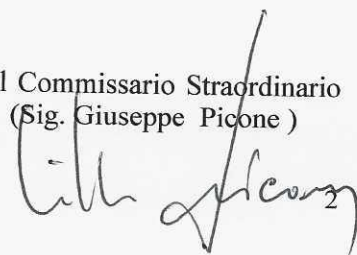 l Commissario Straordinario
(Sig. Giuseppe Picone )
2